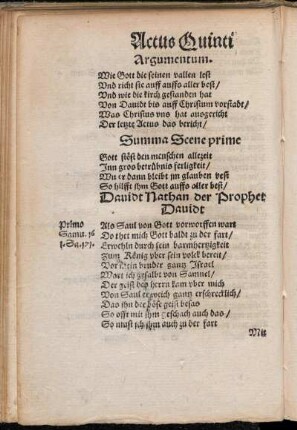 Actus Quinti
Argumentum.
Wie Gott die seinen vallen lest
Vnd richt sie auff auffs aller best/
Vnd wie die kirch gestanden hat
Von Dauidt bis auff Christum vorstadt/
Was Christus vns hat ausgericht
Der letzte Actus das bericht/
Summa Scene prime
Gott stöst den menschen allzeit
Inn gros betrübnis ferligkeit/
Wu er dann bleibt im glauben vest
So hilfft ihm Gott auffs aller best/
Dauidt Nathan der Prophet
Dauidt
Primo
Samu. 16
Als Saul von Gott vorworffen wart
Do thet mich Gott baldt zu der fart/
Erwehln durch sein barmhertzigkeit
Zum König vber sein volck bereit/
Vor mein bruder gantz Israel
Wart ich gesalbt von Samuel/
Der geist des herrn kam vber mich
Von Saul er weich gantz erschrecklich/
Das ihn der böse geist besas
So offt mit ihm geschach auch das/
So must ich ihm auch zu der fart
Mit